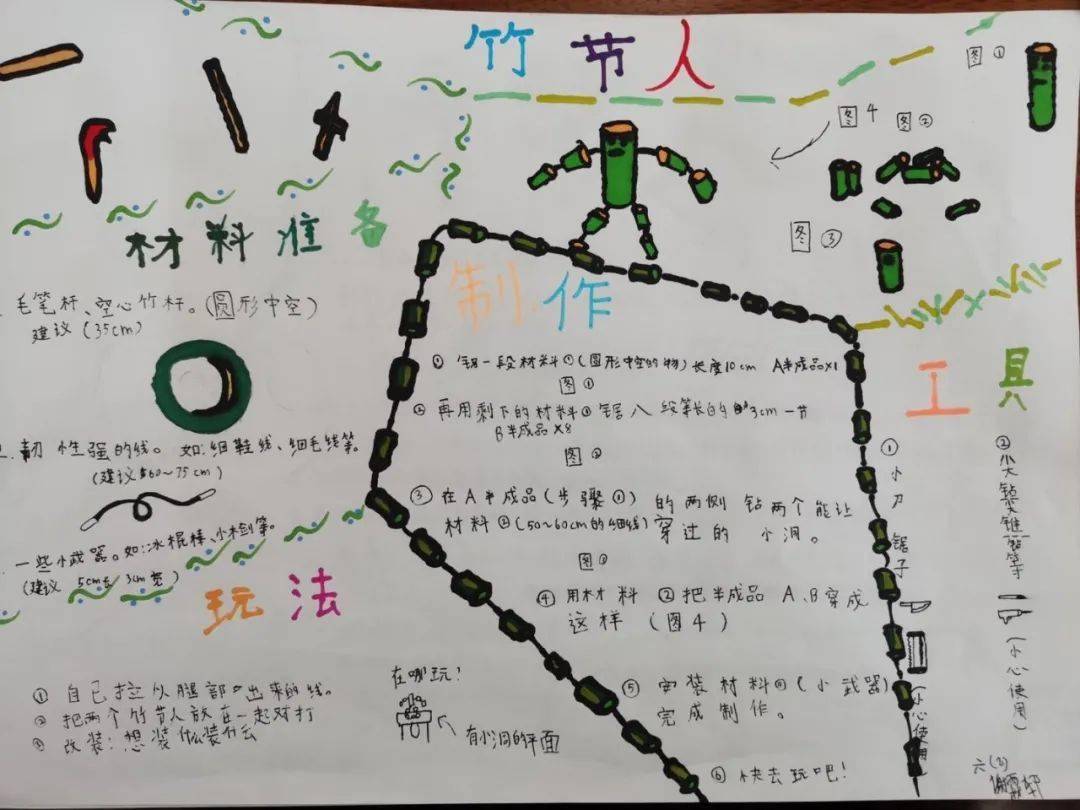 竹节人
图①
图4
图②
图③
材料准备
毛笔杆、空心竹杆。(圆形中空)
建议(35cm)
韧性强的线。如:细鞋线、细毛线等。
(建议 60～75cm)
一些小武器。如:冰棍棒、小木剑等。
(建议 5cm长 3cm宽)
制作
① 锯一段材料①(圆形中空的物)长度10cm A半成品×1
图①
② 再用剩下的材料①锯八段等长的 3cm一节
B半成品×8
图②
③ 在A半成品(步骤①)的两侧钻两个能让
材料②(50～60cm的细线)穿过的小洞。
图③
④ 用材料②把半成品A、B穿成
这样(图4)
⑤ 安装材料③(小武器)
完成制作。
⑥ 快去玩吧!
工具
① 小刀 锯子
(小心使用)
② 小大钻 锥 等等
(小心使用)
玩法
① 自己拉从腿部 出来的线。
② 把两个竹节人放在一起对打
③ 改装:想装什么装什么
在哪玩!
有小洞的平面
六(2)